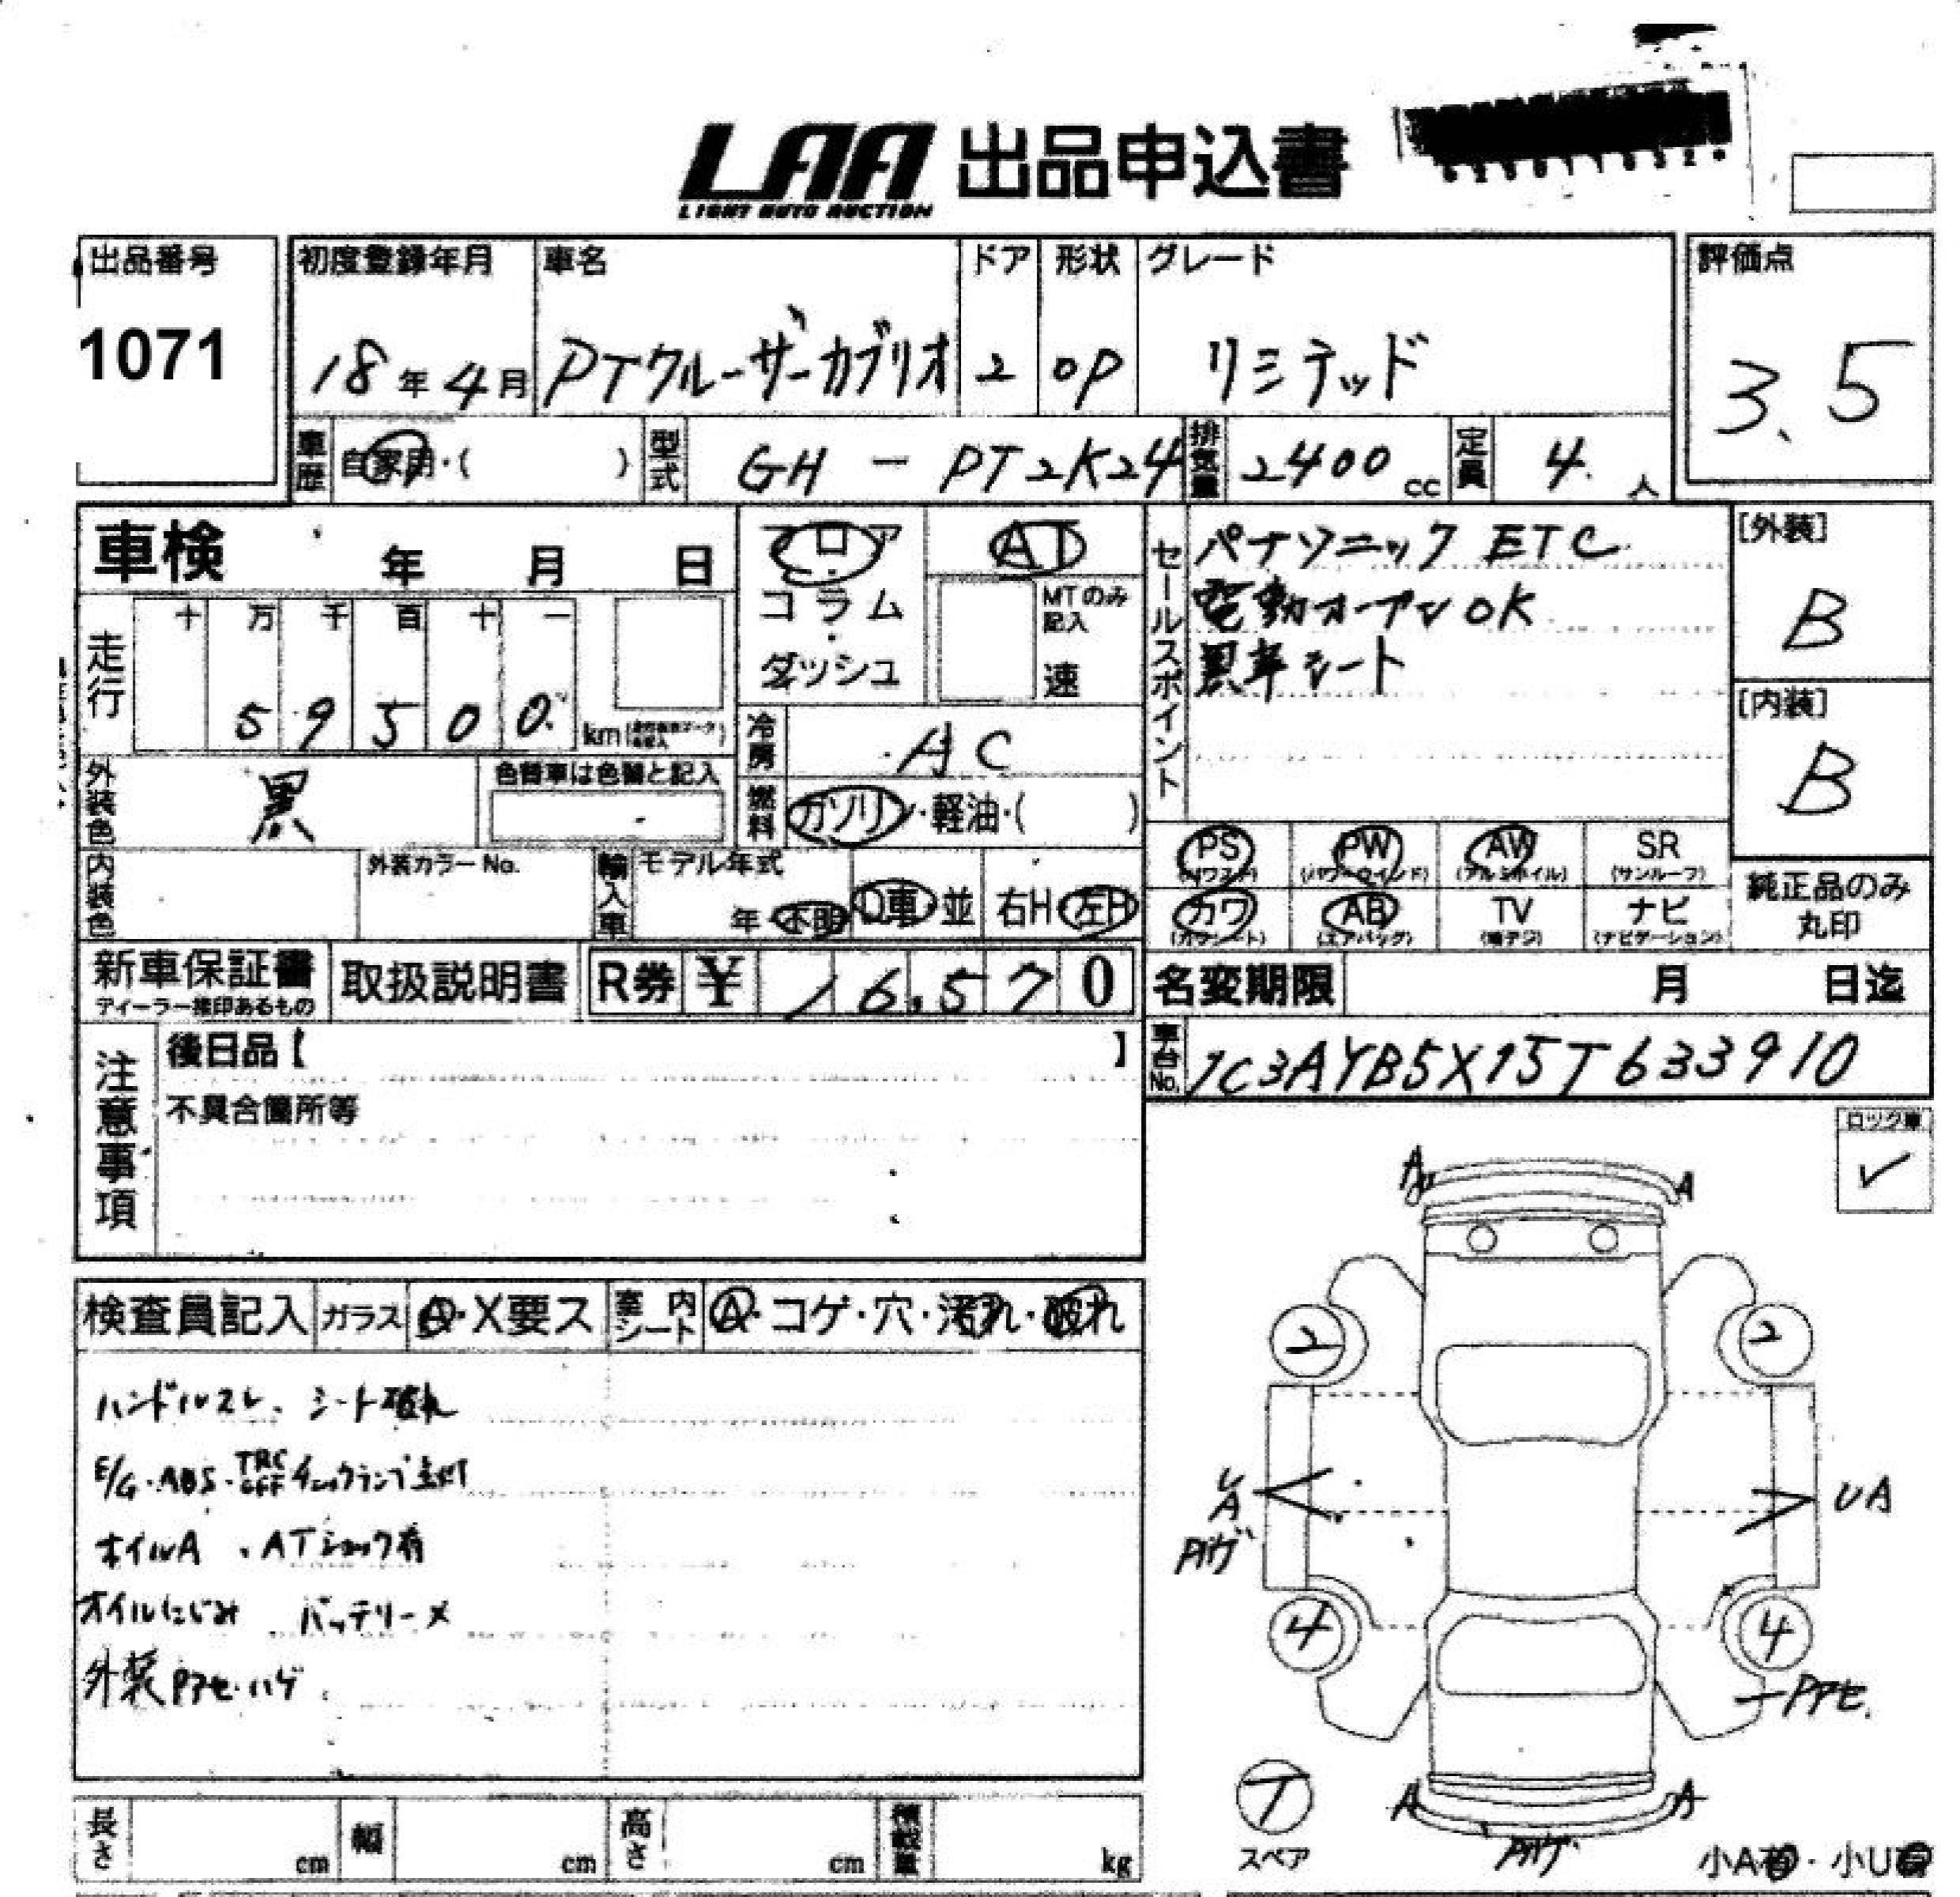 LAA 出品申込書
LIGHT AUTO AUCTION
出品番号
1071
初度登録年月
18年4月
車名
PTクルーザーカブリオ
ドア
2
形状
OP
グレード
リミテッド
評価点
3.5
車歴 自家用・( )
型式 GH - PT2K24
排気量 2400cc
定員 4人
車検 年 月 日
フロア
コラム
ダッシュ
AT
MTのみ記入
速
セールスポイント
パナソニックETC
電動オープンOK
黒革シート
[外装]
B
[内装]
B
走行
十 万 千 百 十 一
59500 km
冷房 AC
外装色 黒
色替車は色替と記入
燃料 ガソリン・軽油・( )
内装色
外装カラーNo.
輸入車
モデル年式
年・不明
D車・並
右H・左H
PS (パワステ)
PW (パワーウインド)
AW (アルミホイル)
SR (サンルーフ)
カワ (カワシート)
AB (エアバッグ)
TV (地デジ)
ナビ (ナビゲーション)
純正品のみ
丸印
新車保証書
ディーラー捺印あるもの
取扱説明書
R券 ¥ 16,570
名変期限 月 日迄
注意事項
後日品【 】
不具合箇所等
車台No. 1C3AYB5X15T633910
ロック車
✓
検査員記入
ガラス A・X要ス
室内シート A・コゲ・穴・汚れ・破れ
ハンドルスレ、シート破れ
E/G・ABS・TRC OFFチェックランプ点灯
オイルA、ATショック有
オイルにじみ バッテリー×
外装Pアセ・ハゲ
A
A
2
2
UA
UA
4
4
Pアセ
T
スペア
A
A
小A有・小U有
長さ cm
幅 cm
高さ cm
積載量 kg